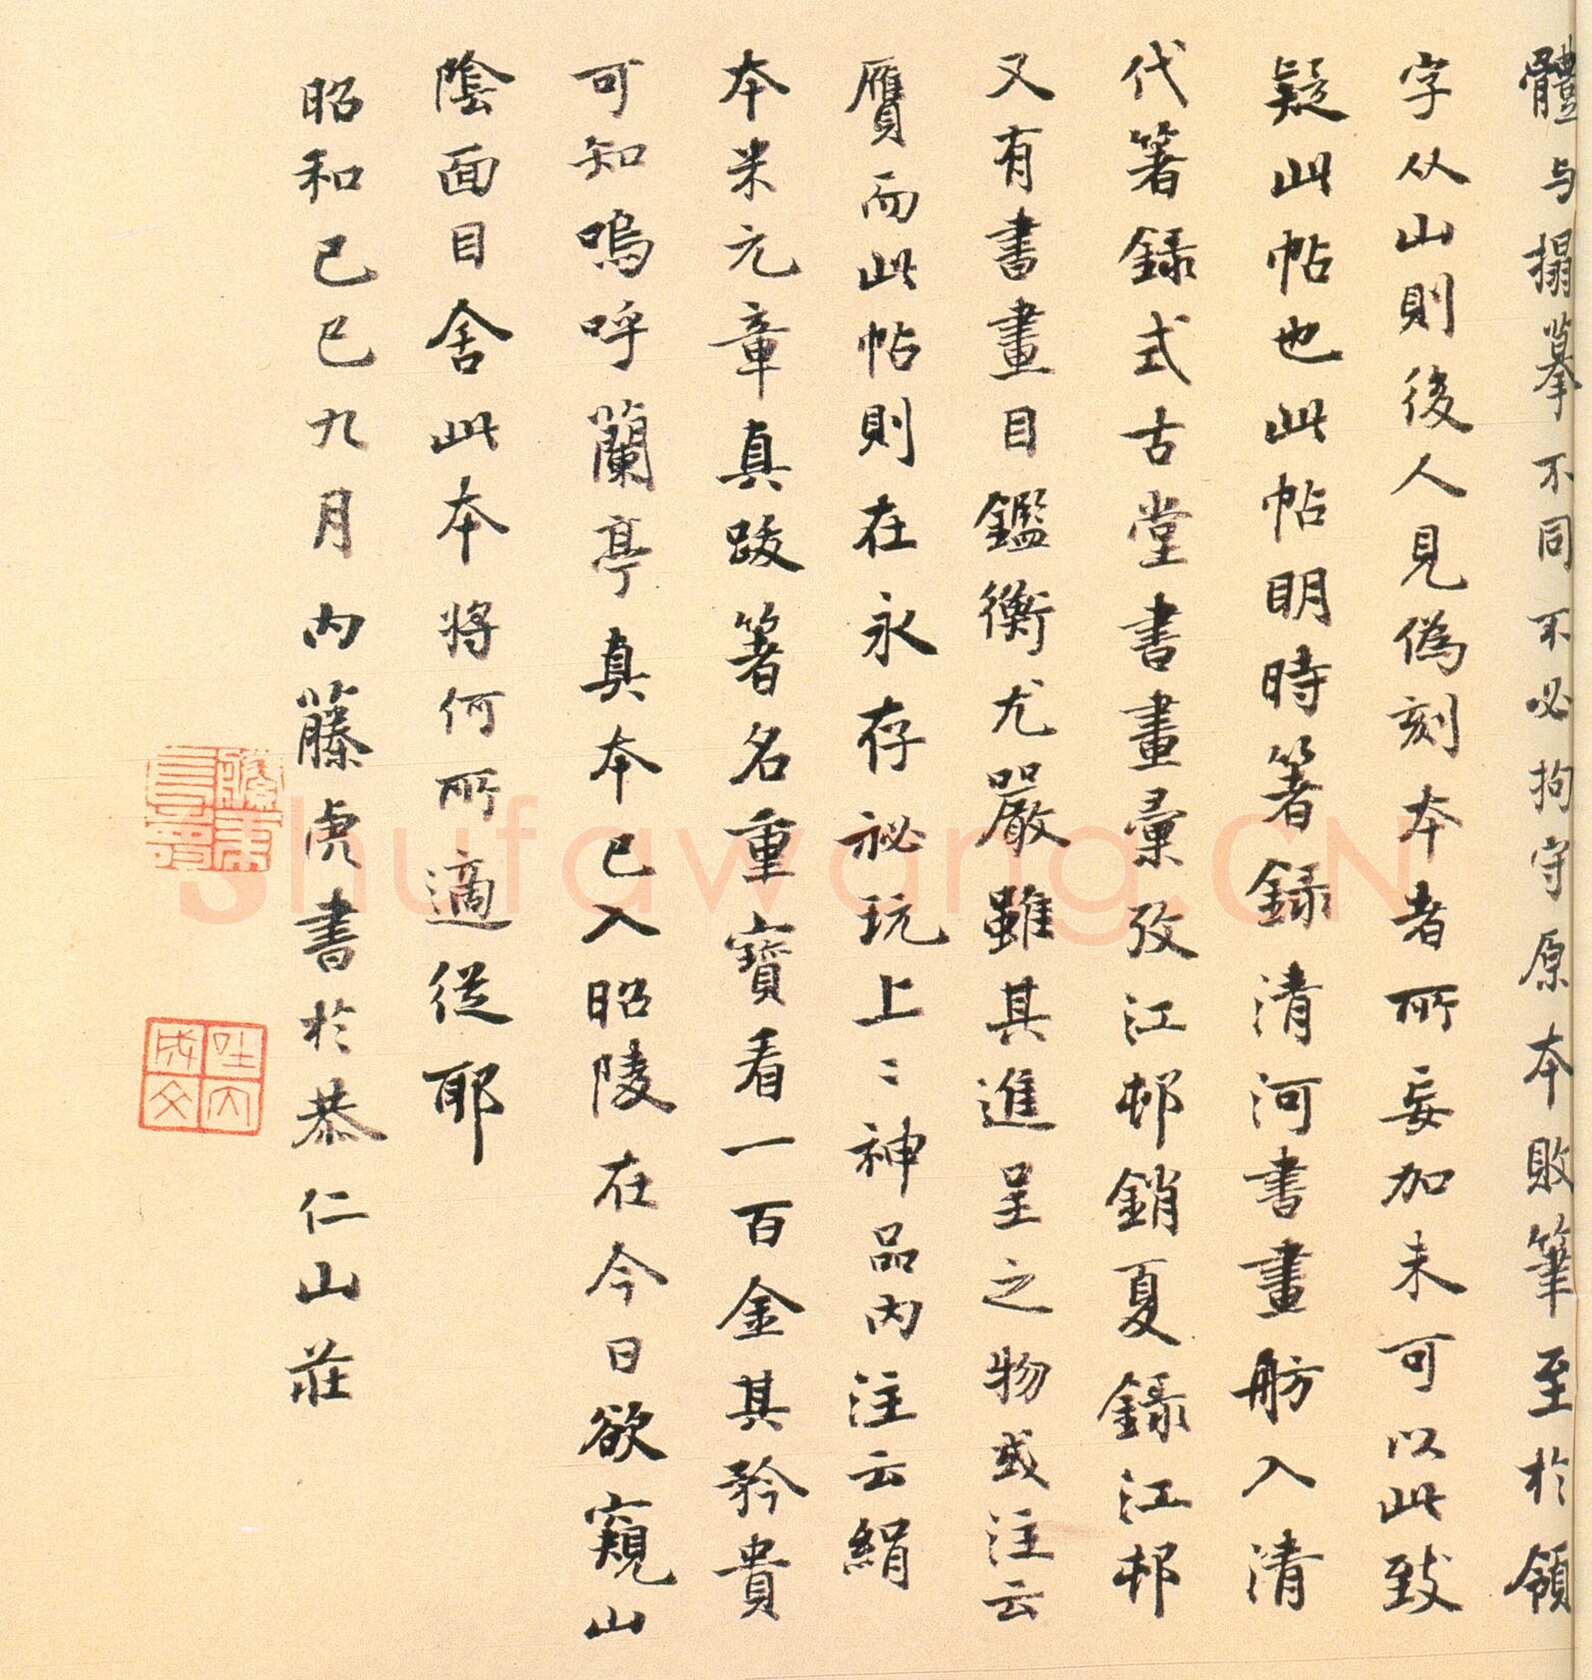 體与搨摹不同不必拘守原本敗筆至於領
字从山則後人見偽刻本者所妄加未可以此致
疑此帖也此帖明時著錄清河書畫舫入清
代著錄式古堂書畫彙攷江邨銷夏錄江邨
又有書畫目鑑衡尤嚴雖其進呈之物或注云
贗而此帖則在永存祕玩上〻神品內注云絹
本米元章真跋著名重寶看一百金其矜貴
可知嗚呼蘭亭真本已入昭陵在今日欲窺山
陰面目舍此本將何所適從耶
昭和己巳九月內藤虎書於恭仁山莊
shufawang.CN